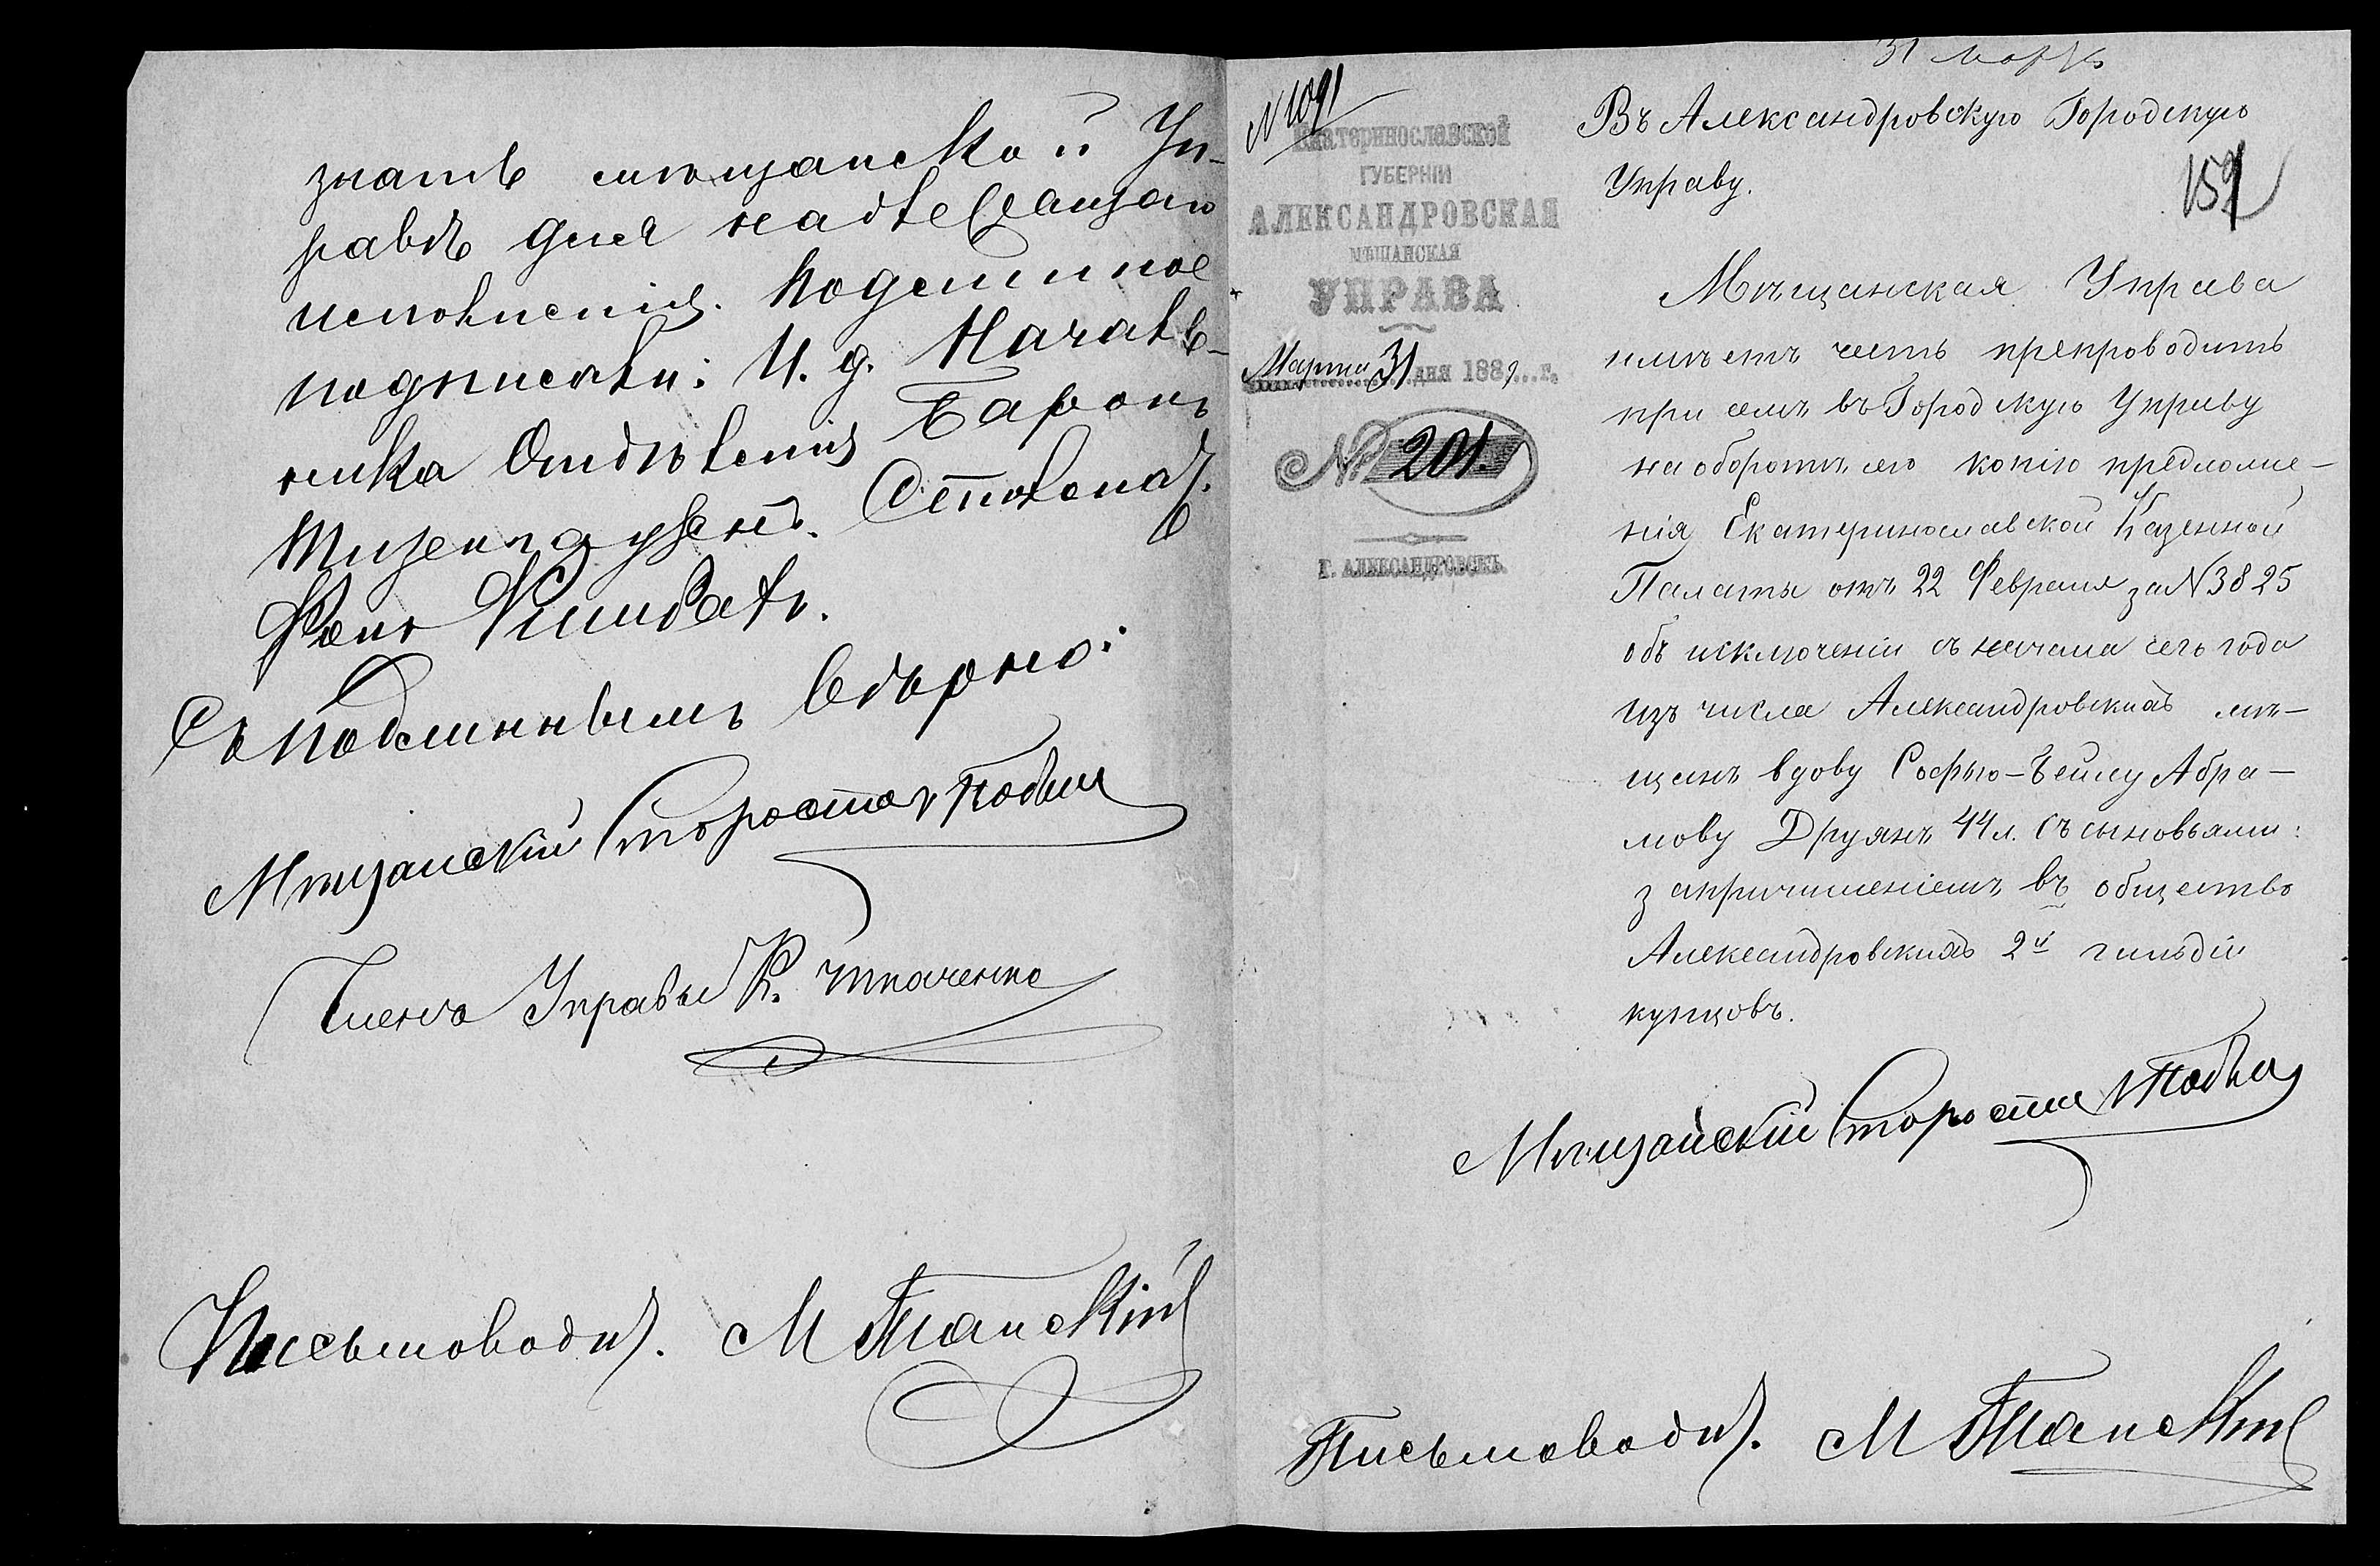 знать мѣщанской Уп-
равѣ для надлежащаго
исполненія. Подлинное
подписали: И. д. Началь-
ника Отдѣленія Баронъ
Тизенгаузенъ. Столонач.
Фонъ
Съ подлиннымъ вѣрно:
Мѣщанскій Староста
Членъ Управы К. Ткаченко
Письмовод. М Танскій
31 марта
№ 1091
Екатеринославской
ГУБЕРНІИ
АЛЕКСАНДРОВСКАЯ
МѢЩАНСКАЯ
УПРАВА
Марта 31 дня 1889 г.
№ 201.
Г. АЛЕКСАНДРОВСКЪ.
Въ Александровскую Городскую
Управу.
159
Мѣщанская Управа
имѣетъ честь препроводить
при семъ въ Городскую Управу
на оборотѣ сего копію предложе-
нія Екатеринославской Казенной
Палаты отъ 22 Февраля за № 3825
объ исключеніи съ начала сего года
изъ числа Александровскихъ мѣ-
щанъ вдову Софью-Бейлу Абра-
мову Друянъ 44 л. съ сыновьями:
за причисленіемъ въ общество
Александровскихъ 2й гильдіи
купцовъ.
Мѣщанскій Староста
Письмовод. М Танскій